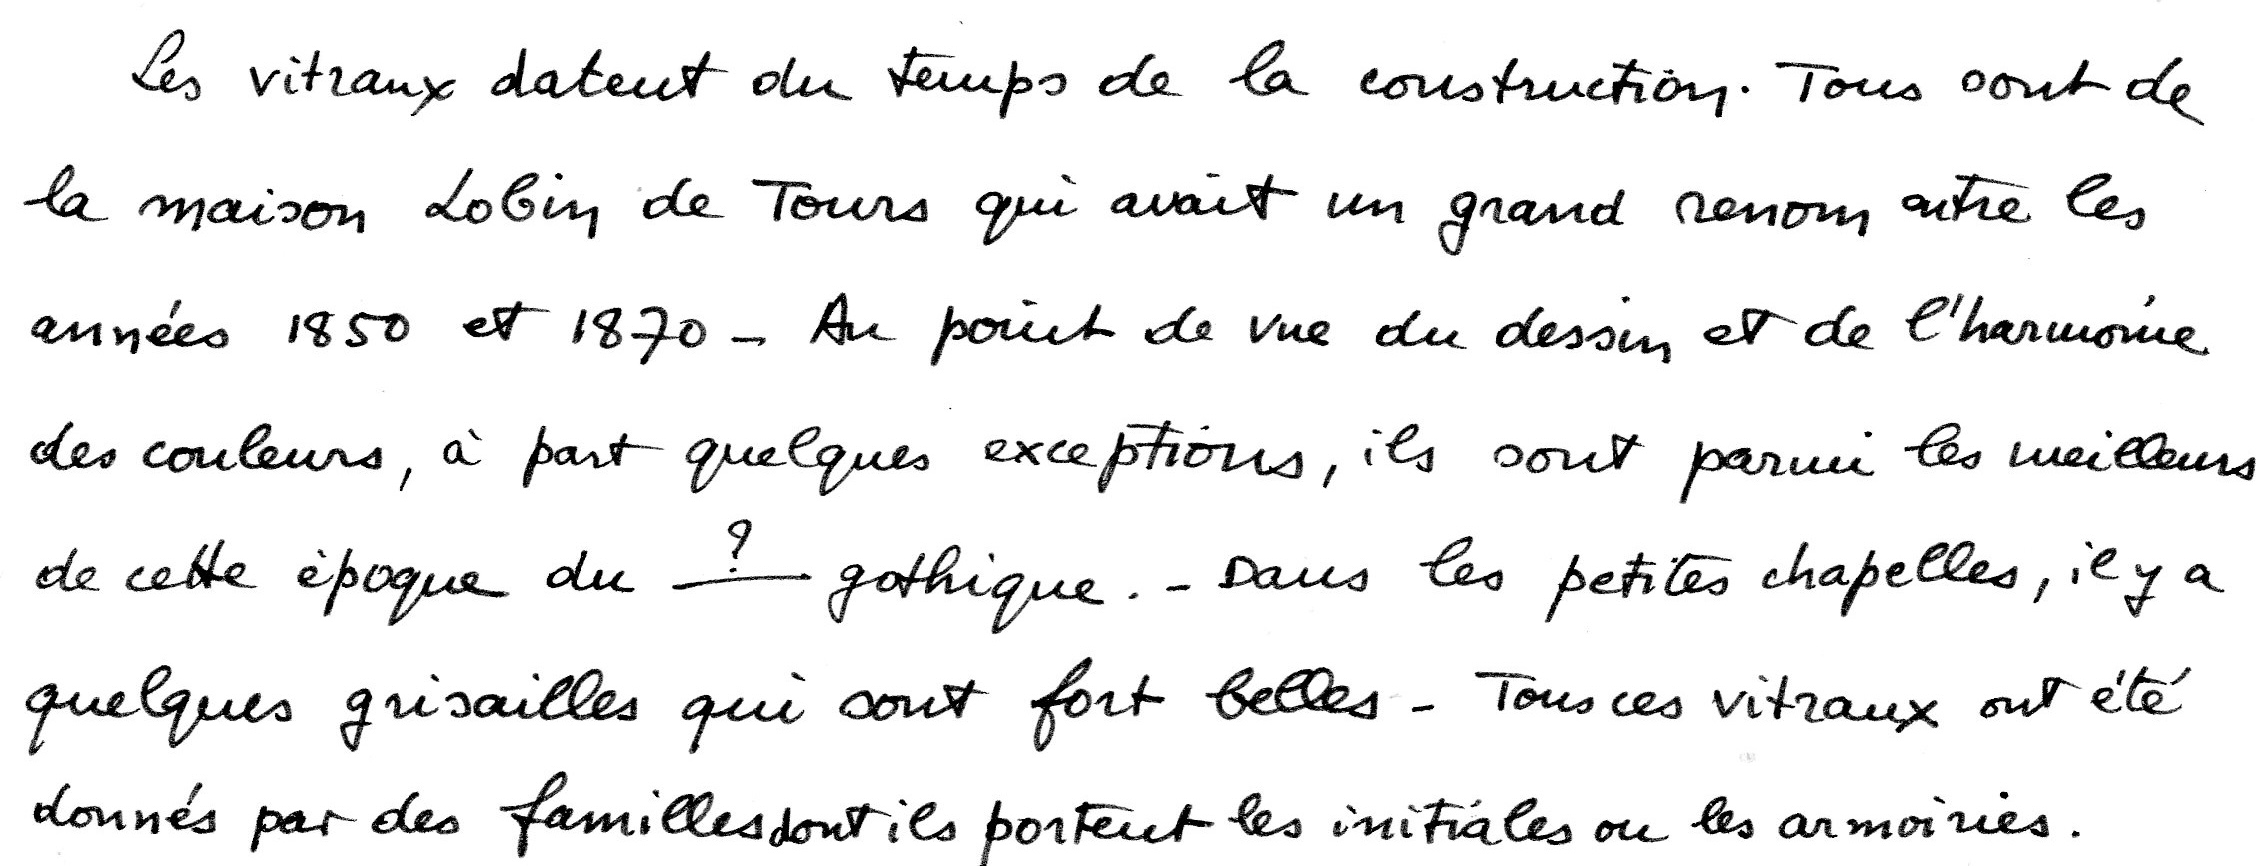 Les vitraux datent du temps de la construction. Tous sont de
la maison Lobin de Tours qui avait un grand renom entre les
années 1850 et 1870 - Au point de vue du dessin et de l'harmonie
des couleurs, à part quelques exceptions, ils sont parmi les meilleurs
de cette époque du ? gothique. - Dans les petites chapelles, il y a
quelques grisailles qui sont fort belles - Tous ces vitraux ont été
donnés par des familles dont ils portent les initiales ou les armoiries.